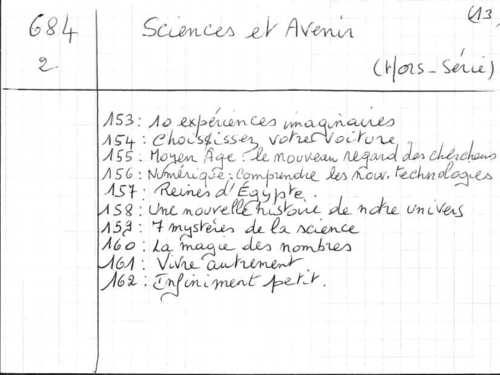 (13
684
2
Sciences et Avenir
(Hors-Série)
153: 10 expériences imaginaires
154: Choisissez votre voiture
155: Moyen Age: le nouveau regard des chercheurs
156: Numérique: comprendre les nouv. technologies
157: Reines d'Égypte.
158: Une nouvelle histoire de notre univers
159: 7 mystères de la science
160: La magie des nombres
161: Vivre autrement
162: Infiniment petit.